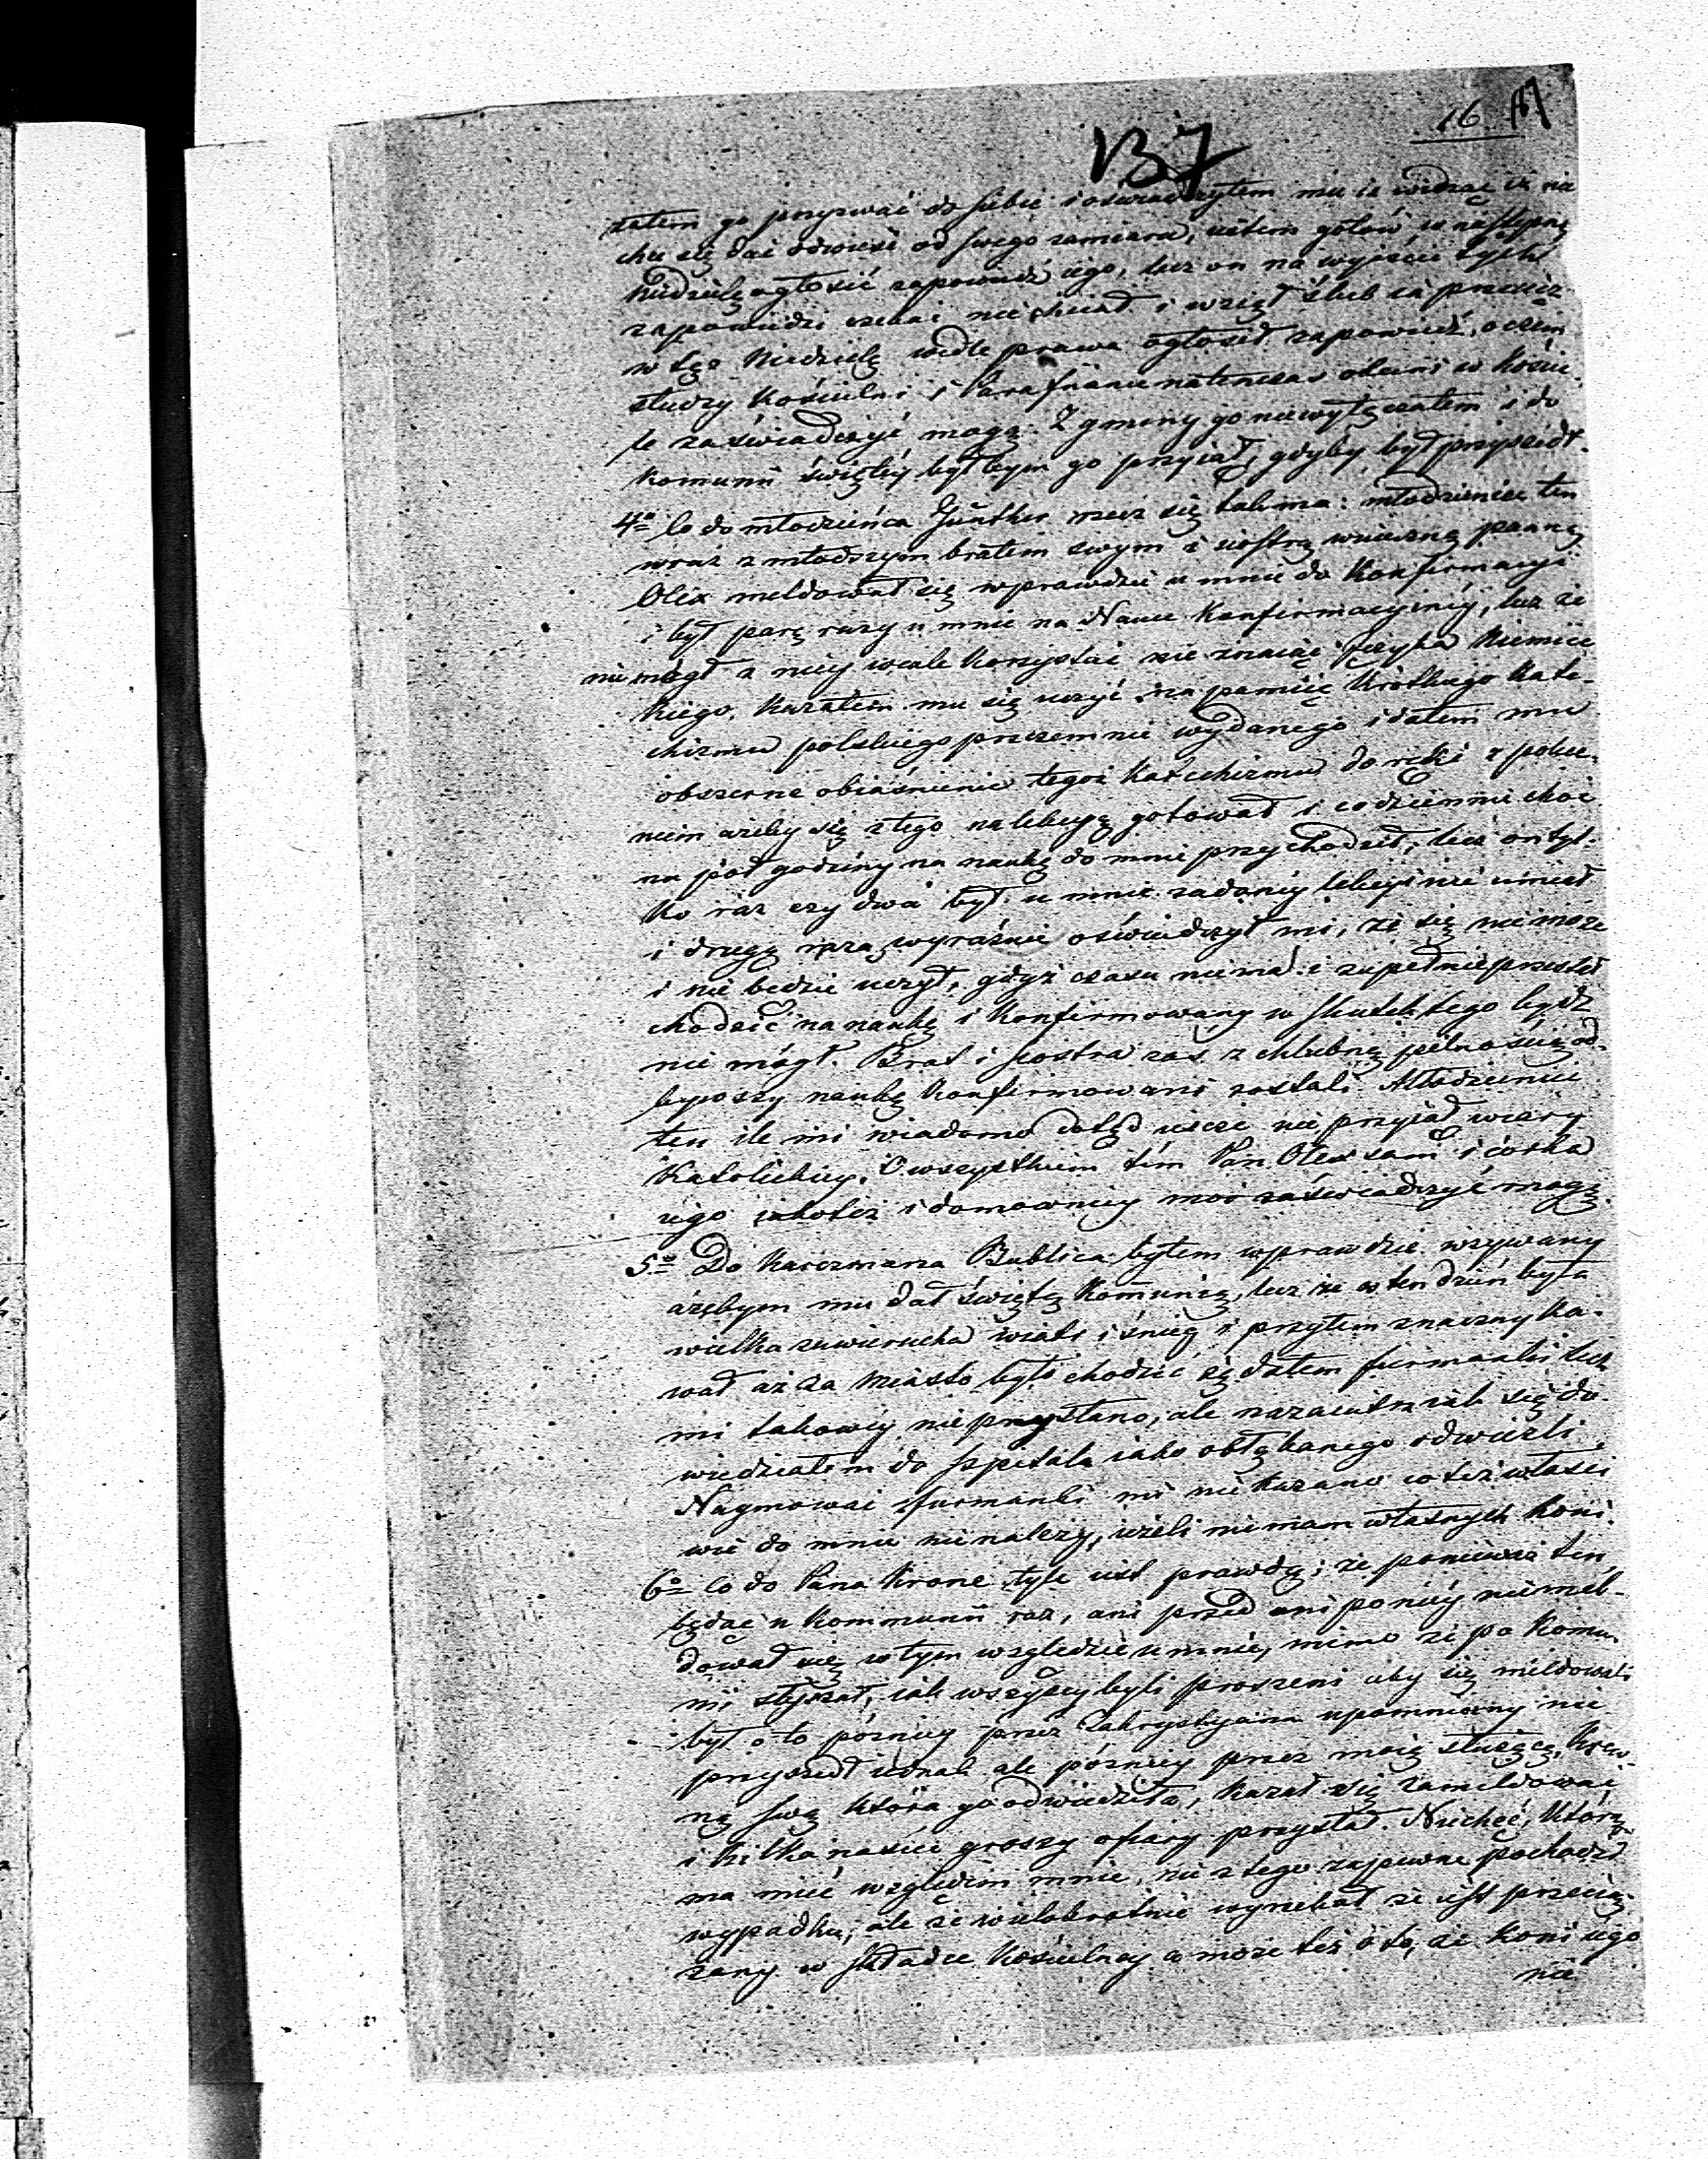 16
137
załem go przyzwać do siebie i oświadczyłem mu iż widząc iż nie
chce się dać odwieść od swego zamiaru, iestem gotów w następną
Niedzielę ogłosić zapowiedź iego, lecz on na wyiście tych
zapowiedzi czekać nie chciał i wziął ślub ia przecież
w tę Niedzielę wedle prawa ogłosił zapowiedź, o czem
słudzy Kościelni i Parafianie natenczas obecni w Koście-
le zaświadczyć mogą. Z gminy go niewyłączałem i do
komunii świętéy byłbym go przyiął, gdyby był przyszedł.
4o Co do młodzieńca Günther rzecz się tak ma: młodzieniec ten
wraz z młodszym bratem swym i siostrą wnieszną panną
Olex meldował się wprawdzie u mnie do Konfirmacyi
i był parę razy u mnie na Nauce Konfirmacyinéy, lecz że
nie mógł z niey wcale korzystać nie znaiąc ięzyka Niemiec
kiego, kazałem mu się uczyć na pamięć krótkiego kate-
chizmu polskiego przezemnie wydanego i dałem mu
obszerne obiaśnienie tegoż Katechizmu do ręki z polece-
niem ażeby się z tego na lekcyę gotował i codziennie choć
na pół godziny na naukę do mnie przychodził, lecz on tyl-
ko raz czy dwa był u mnie zadaney lekcyi nie umiał
i drugą razą wyraźnie oświadczył mi, że się nie może
i nie będzie uczył, gdyż czasu nie ma i zupełnie przestał
chodzić na naukę i Konfirmowany w skutek tego bydź
nie mógł. Brat i siostra zaś z chlubną pilnością od-
bywszy naukę Konfirmowani zostali. Młodzieniec
ten ile mi wiadomo dotąd ieszcze nie przyiął wiary
Katolickiey. O wszystkiem tém Pan Olex sam i córka
iego iakoteż i domownicy moi zaświadczyć mogą.
5o Do Karczmarza Bublica byłem wprawdzie wzywany
ażebym mu dał świętą Komunią, lecz że w ten dzień była
wielka zawierucha wiatr i śnieg i przytem znaczny ka-
wał aż za Miasto było chodzić żądałem furmanki lecz
mi takowéy nie przysłano, ale nazaiutrz iak się do-
wiedziałem do szpitala iako obłąkanego odwieźli.
Naymować furmanki mi nie kazano co też właści
wie do mnie nie należy, ieżeli nie mam własnych koni.
6o Co do Pana Krone tyle iest prawdą; że ponieważ ten
będąc u Kommunii raz, ani przed ani po niéy nie mel-
dował się w tym względzie u mnie, mimo że po Komu-
nii słyszał, iak wszyscy byli proszeni aby się meldowali
był o to późniey przez Zakrystyana upomniony nie
przyszedł iednak ale późniey przez moię służącą, krew-
ną swą która go odwiedziła, kazał się zameldować
i kilkanaście groszy ofiary przysłał. Niechęć, którą
ma mieć względem mnie, nie z tego zapewne pochodzi
wypadku; ale że wielokrotnie wyrzekał że iest przecią-
żany w składce Kościelney a może też o to, że koni iego
nie